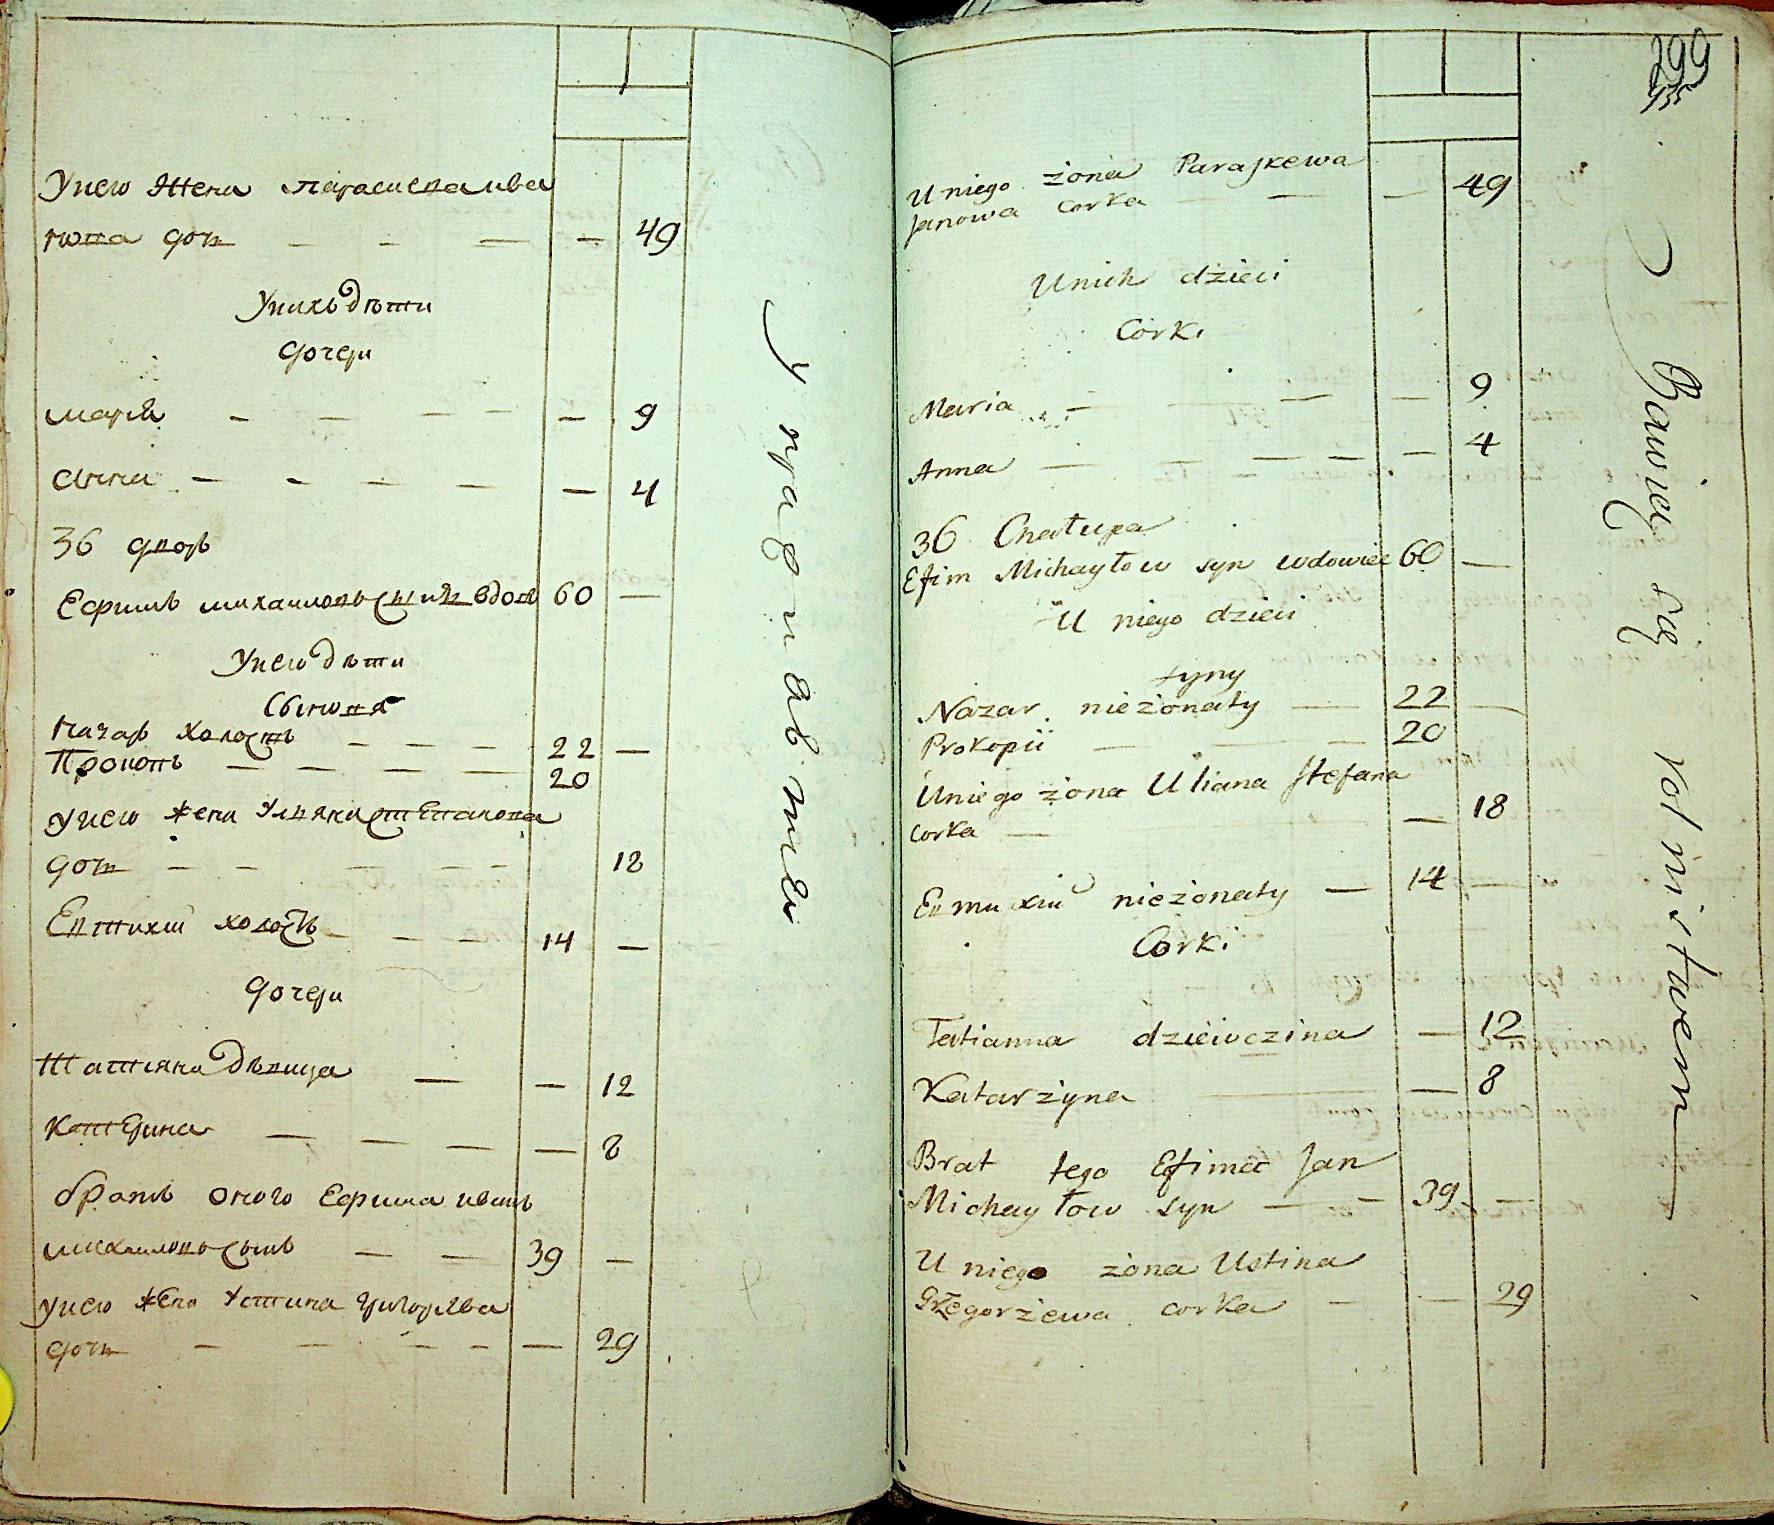 Унего жена параскева ива
нова доч — — — — 49
Унихъ дѣти
дочери
марія — — — — — 9
анна — — — — — 4
36 дворъ
Ефимъ михаиловъ сынъ вдовъ 60 —
Унего дѣти
Сынов'я
назаръ холостъ — — — 22 —
Прокопъ — — — — 20
унего жена Ульяна степанова
доч — — — — — 18
Евтихій холостъ — — — 14 —
дочери
татіяна дѣвица — — 12
катерина — — — — 8
братъ оного Ефима иванъ
михаиловъ сынъ — — 39 —
унего жена устина григоріева
доч — — — — — 29
299
U niego żona Paraskewa
Janowa corka — — — 49
Unich dzieci
Corki
Maria — — — — 9
Anna — — — — — 4
36 Chałupa
Efim Michayłow syn wdowiec 60 —
U niego dzieci
syny
Nazar nieżonaty — 22 —
Prokopii — — — 20
Uniego żona Uliana Stefana
corka — — 18
Евтихій nieżonaty — 14 —
Corki
Tatianna dzieiwczina — 12
Katarżyna — — 8
Brat tego Efima Jan
Michayłow syn — — 39 —
U niego żona Ustina
Grzegorżewa corka — — 29
Bawią się rolnistwem